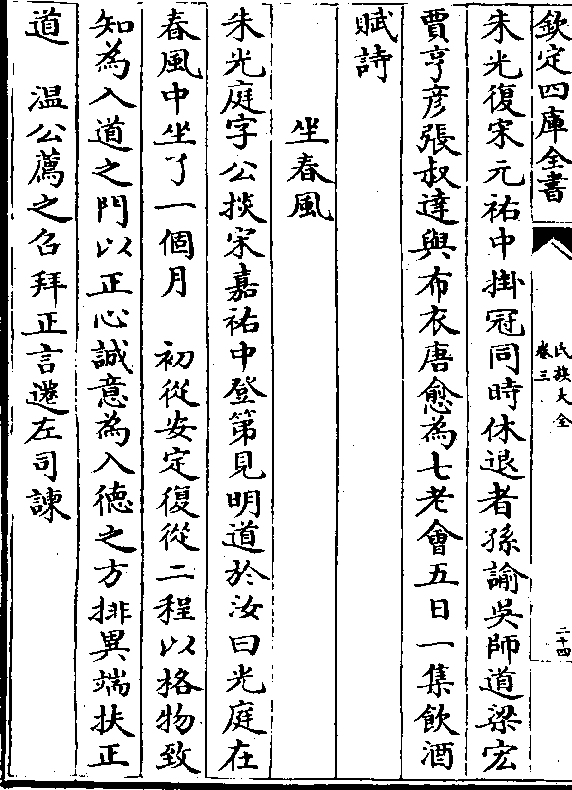 欽定四庫全書
氏族大全
卷三
二十四
朱光復宋元祐中掛冠同時休退者孫諭吳師道梁宏
賈亨彦張叔達與布衣唐愈為七老會五日一集飲酒
賦詩
坐春風
朱光庭字公掞宋嘉祐中登第見明道於汝曰光庭在
春風中坐了一個月　初從安定復從二程以格物致
知為入道之門以正心誠意為入德之方排異端扶正
道　温公薦之召拜正言遷左司諫